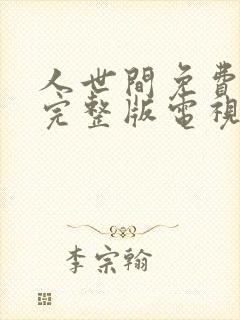 人世間免費
完整版電視
李宗翰